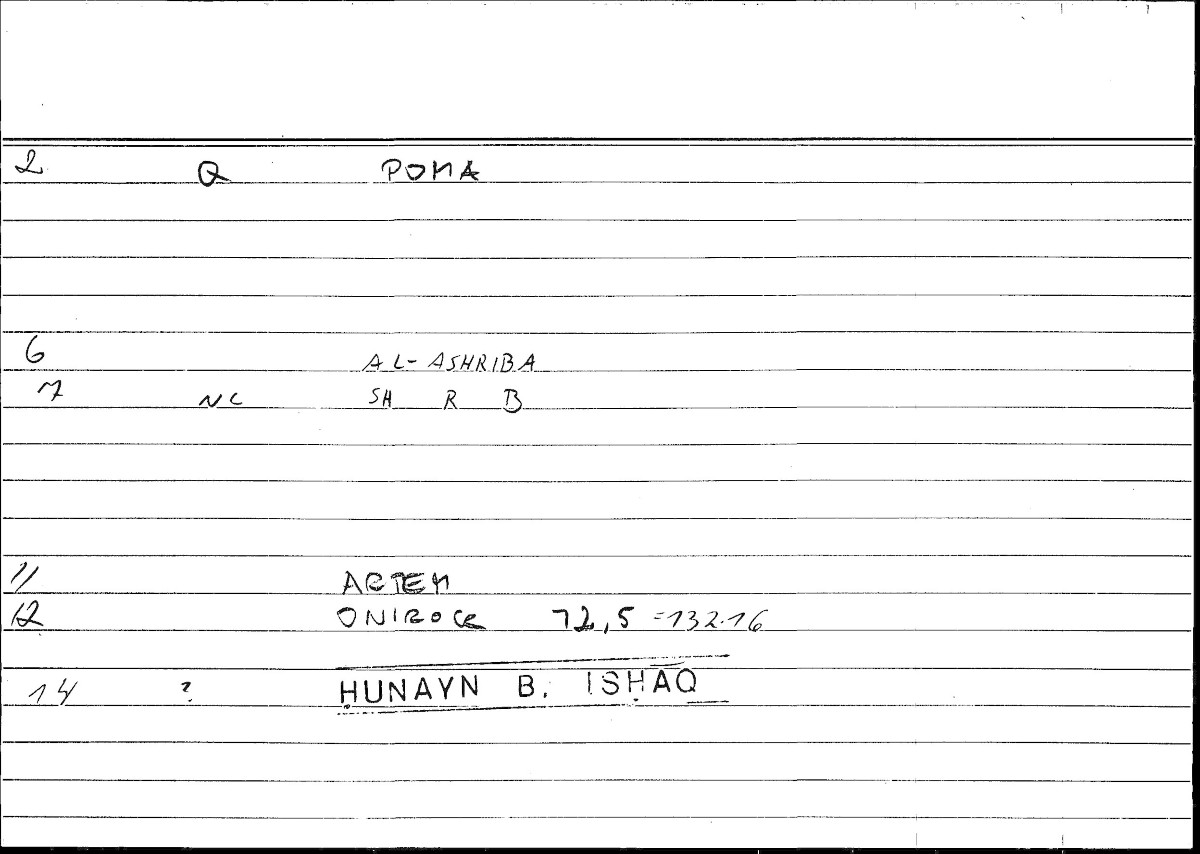 2 Q POMA
6 AL-ASHRIBA
7 NC SH R B
11 ARTEM
12 ONIROCR 72,5 =132.16
14 ? ḤUNAYN B. ISḤĀQ